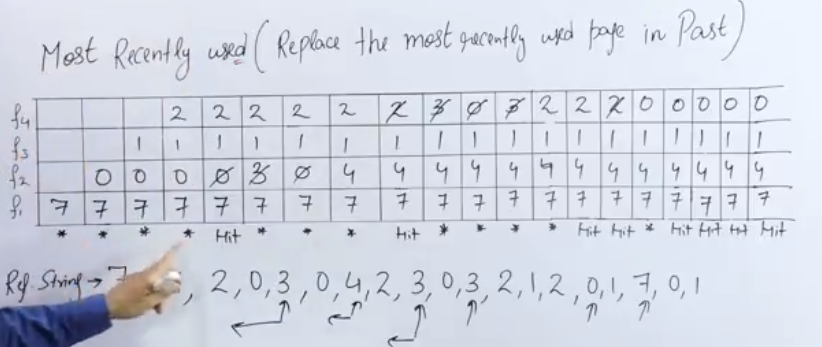 Most Recently used (Replace the most recently used page in Past)
f4 2 2 2 2 2 2 3 0 3 2 2 2 0 0 0 0 0
f3 1 1 1 1 1 1 1 1 1 1 1 1 1 1 1 1 1 1
f2 0 0 0 0 3 0 4 4 4 4 4 4 4 4 4 4 4 4 4
f1 7 7 7 7 7 7 7 7 7 7 7 7 7 7 7 7 7 7 7 7
* * * * Hit * * * Hit * * * * Hit Hit * Hit Hit Hit Hit
Ref. String → 7 , 2, 0, 3, 0, 4, 2, 3, 0, 3, 2, 1, 2, 0, 1, 7, 0, 1